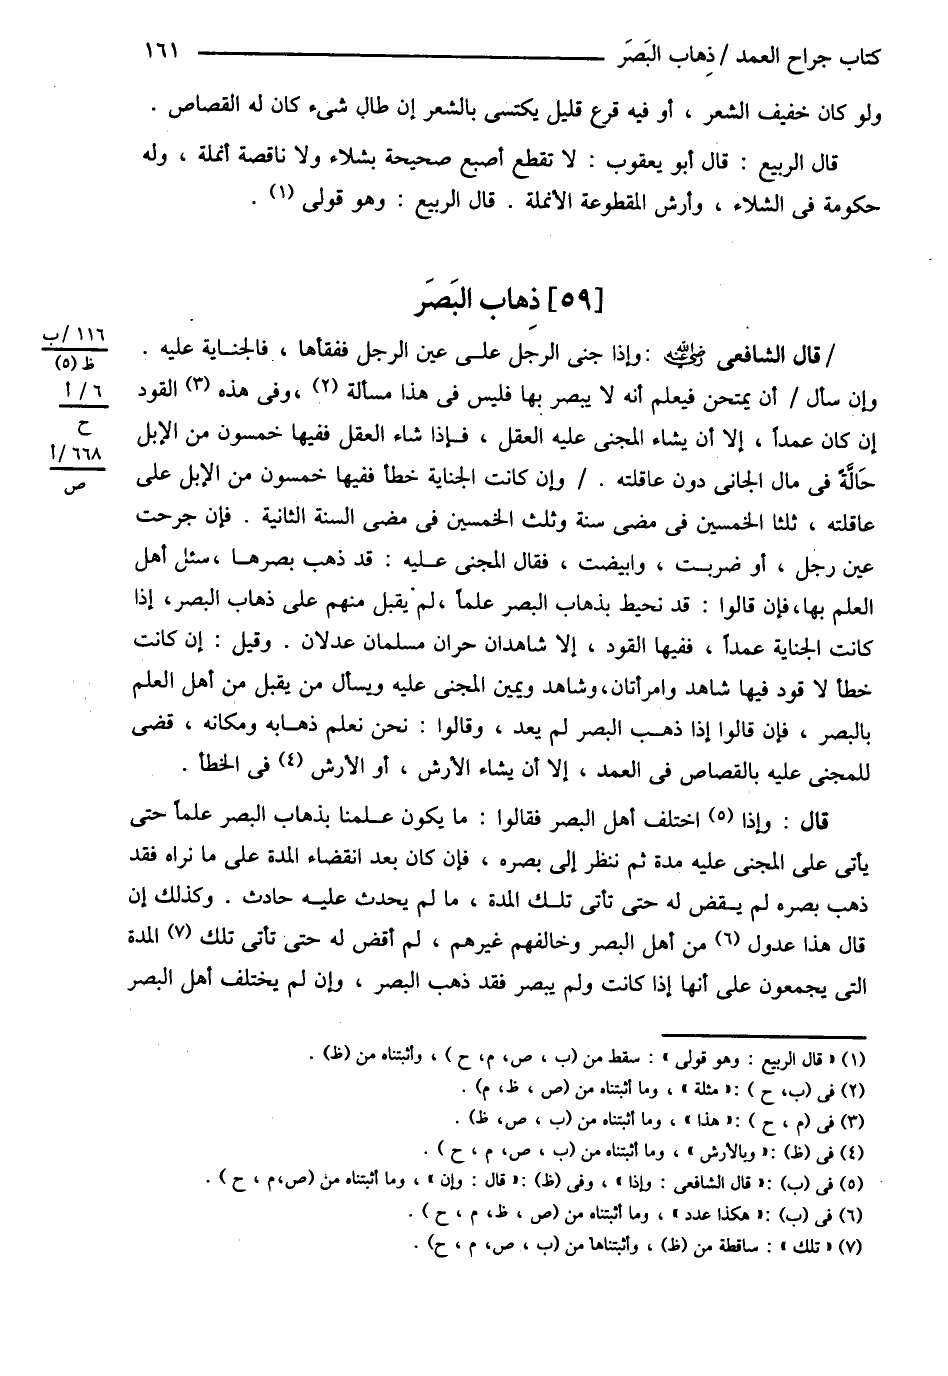 كتاب جراح العمد / ذِهاب البَصَرَ ١٦١
ولو كان خفيف الشعر ، أو فيه قرع قليل يكتسى بالشعر إن طال شىء كان له القصاص .
قال الربيع : قال أبو يعقوب : لا تقطع أصبع صحيحة بشلاء ولا ناقصة أنملة ، وله
حكومة فى الشلاء ، وأرش المقطوعة الأنملة . قال الربيع : وهو قولى (١) .
[٥٩] ذِهاب البَصَرَ
/ قال الشافعى رضي الله عنه : وإذا جنى الرجل على عين الرجل ففقأها ، فالجناية عليه .
وإن سأل / أن يمتحن فيعلم أنه لا يبصر بها فليس فى هذا مسألة (٢) ، وفى هذه (٣) القود
إن كان عمداً ، إلا أن يشاء المجنى عليه العقل ، فإذا شاء العقل ففيها خمسون من الإبل
حَالَّةً فى مال الجانى دون عاقلته . / وإن كانت الجناية خطأ ففيها خمسون من الإبل على
عاقلته ، ثلثا الخمسين فى مضى سنة وثلث الخمسين فى مضى السنة الثانية . فإن جرحت
عين رجل ، أو ضربت ، وابيضت ، فقال المجنى عليه : قد ذهب بصرها ، سئل أهل
العلم بها، فإن قالوا : قد نحيط بذهاب البصر علماً ، لم يقبل منهم على ذهاب البصر، إذا
كانت الجناية عمداً ، ففيها القود ، إلا شاهدان حران مسلمان عدلان . وقيل : إن كانت
خطأ لا قود فيها شاهد وامرأتان، وشاهد ويمين المجنى عليه ويسأل من يقبل من أهل العلم
بالبصر ، فإن قالوا إذا ذهب البصر لم يعد ، وقالوا : نحن نعلم ذهابه ومكانه ، قضى
للمجنى عليه بالقصاص فى العمد ، إلا أن يشاء الأرش ، أو الأرش (٤) فى الخطأ .
قال : وإذا (٥) اختلف أهل البصر فقالوا : ما يكون علمنا بذهاب البصر علماً حتى
يأتى على المجنى عليه مدة ثم ننظر إلى بصره ، فإن كان بعد انقضاء المدة على ما نراه فقد
ذهب بصره لم يقض له حتى تأتى تلك المدة ، ما لم يحدث عليه حادث . وكذلك إن
قال هذا عدول (٦) من أهل البصر وخالفهم غيرهم ، لم أقض له حتى تأتى تلك (٧) المدة
التى يجمعون على أنها إذا كانت ولم يبصر فقد ذهب البصر ، وإن لم يختلف أهل البصر
١١٦/ب
ظ (٥)
٦ / أ
ح
٦٦٨/أ
ص
(١) « قال الربيع : وهو قولى » : سقط من (ب ، ص، م، ح ) ، وأثبتناه من (ظ) .
(٢) فى (ب، ح ) : « مثلة » ، وما أثبتناه من (ص ، ظ، م) .
(٣) فى (م ، ح ) : « هذا » ، وما أثبتناه من (ب ، ص، ظ) .
(٤) فى (ظ) : « وبالأرش » ، وما أثبتناه من (ب ، ص، م ، ح ) .
(٥) فى (ب) : « قال الشافعى : وإذا » ، وفى (ظ) : « قال : وإن » ، وما أثبتناه من (ص،م ، ح ) .
(٦) فى (ب) : « هكذا عدد » ، وما أثبتناه من (ص ، ظ، م ، ح ) .
(٧) « تلك » : ساقطة من (ظ) ، وأثبتناها من (ب ، ص، م ، ح) .